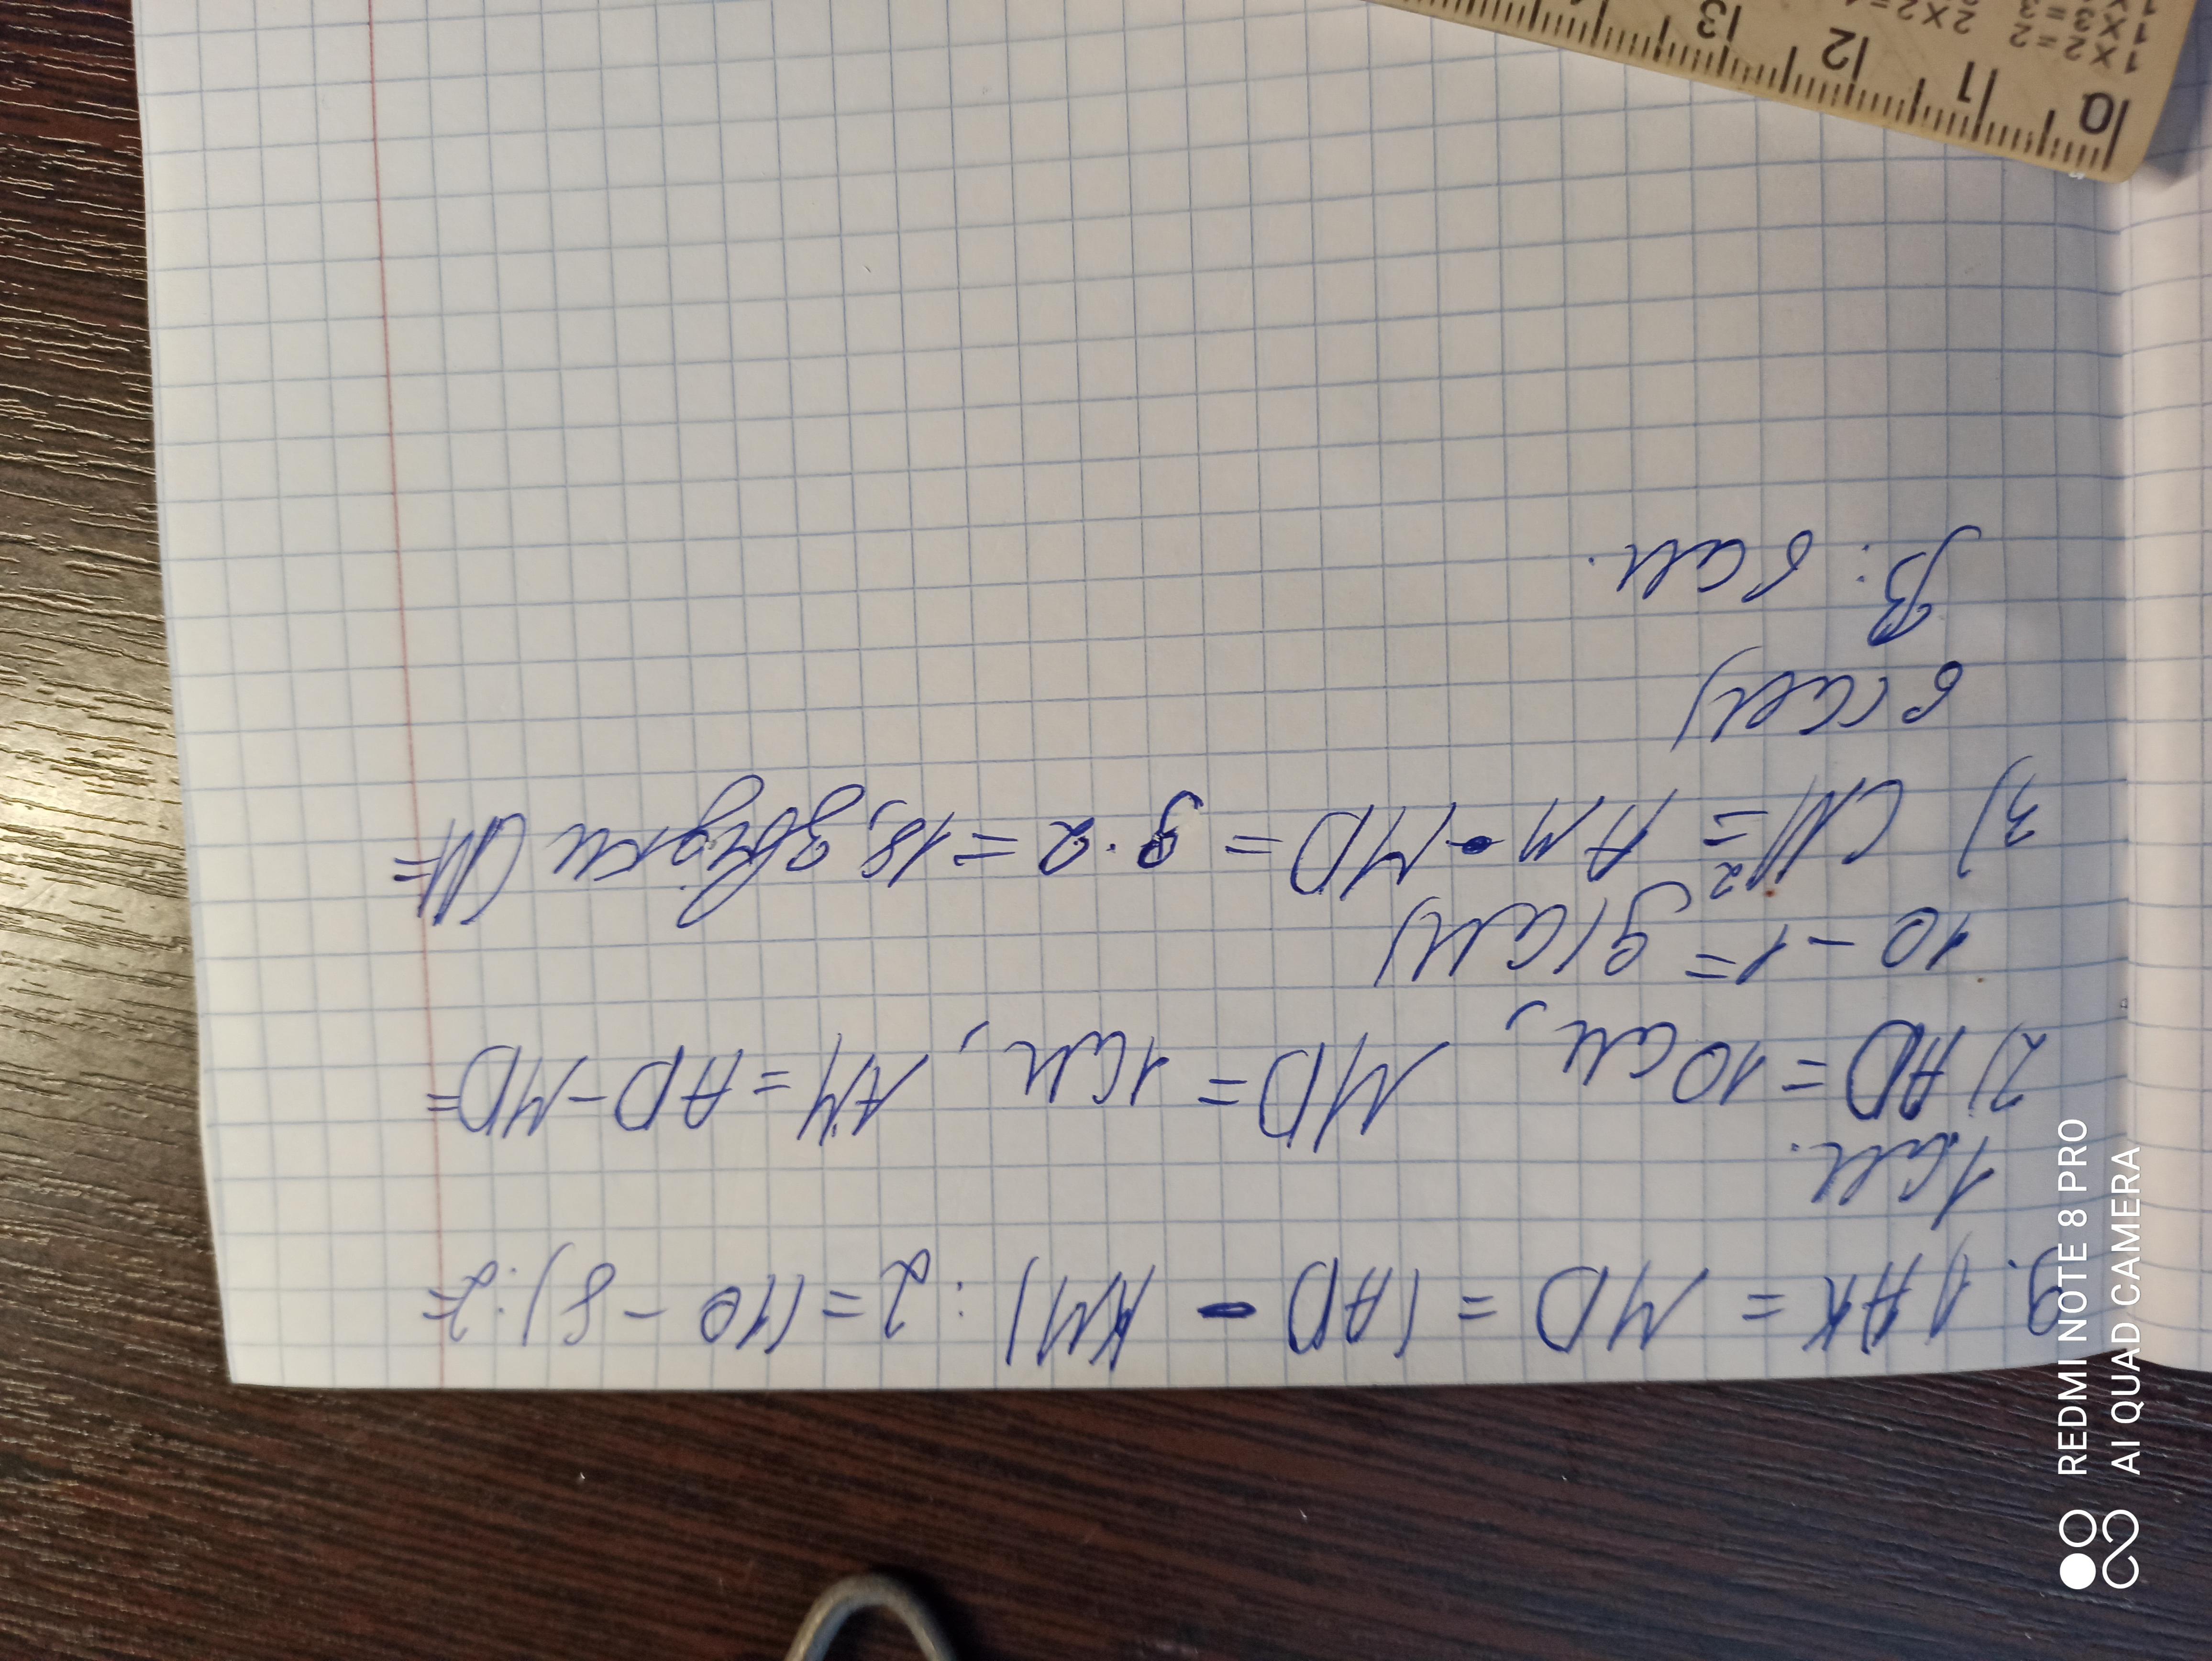 9. 1) AK = MD = (AD - KM) : 2 = (10 - 8) : 2 =
1 см.
2) AD = 10 см, MD = 1 см, AM = AD - MD =
10 - 1 = 9 (см)
3) CM² = AM · MD = 9 · 2 = 18, звідки CM =
6 (см)
В: 6 см.
10 11 12 13
1 x 2 = 2
1 x 3 = 3
2 x 2 =
REDMI NOTE 8 PRO
AI QUAD CAMERA